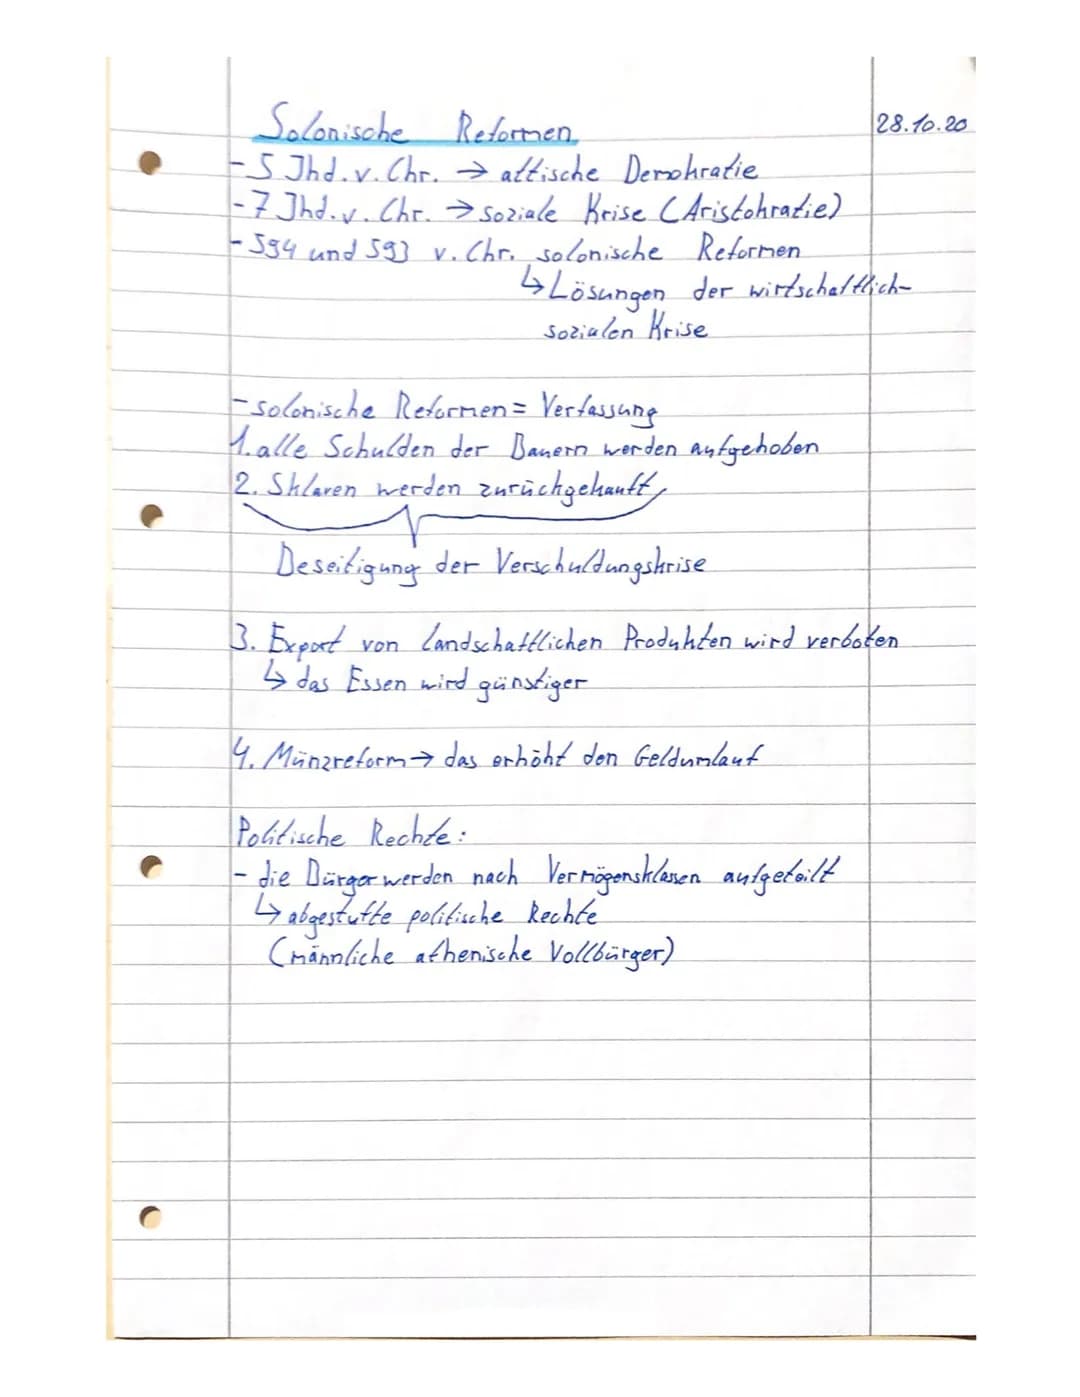 Solonische Reformen
28.10.20
- 5 Jhd. v. Chr. → attische Demokratie
- 7 Jhd. v. Chr. → soziale Krise (Aristokratie)
- 594 und 593 v. Chr. solonische Reformen
↳ Lösungen der wirtschaftlich-
sozialen Krise
- solonische Reformen = Verfassung
1. alle Schulden der Bauern werden aufgehoben
2. Sklaven werden zurückgekauft
Beseitigung der Verschuldungskrise
3. Export von landschaftlichen Produkten wird verboten
↳ das Essen wird günstiger
4. Münzreform → das erhöht den Geldumlauf
Politische Rechte:
- die Bürger werden nach Vermögensklassen aufgeteilt
↳ abgestufte politische Rechte
(männliche athenische Vollbürger)